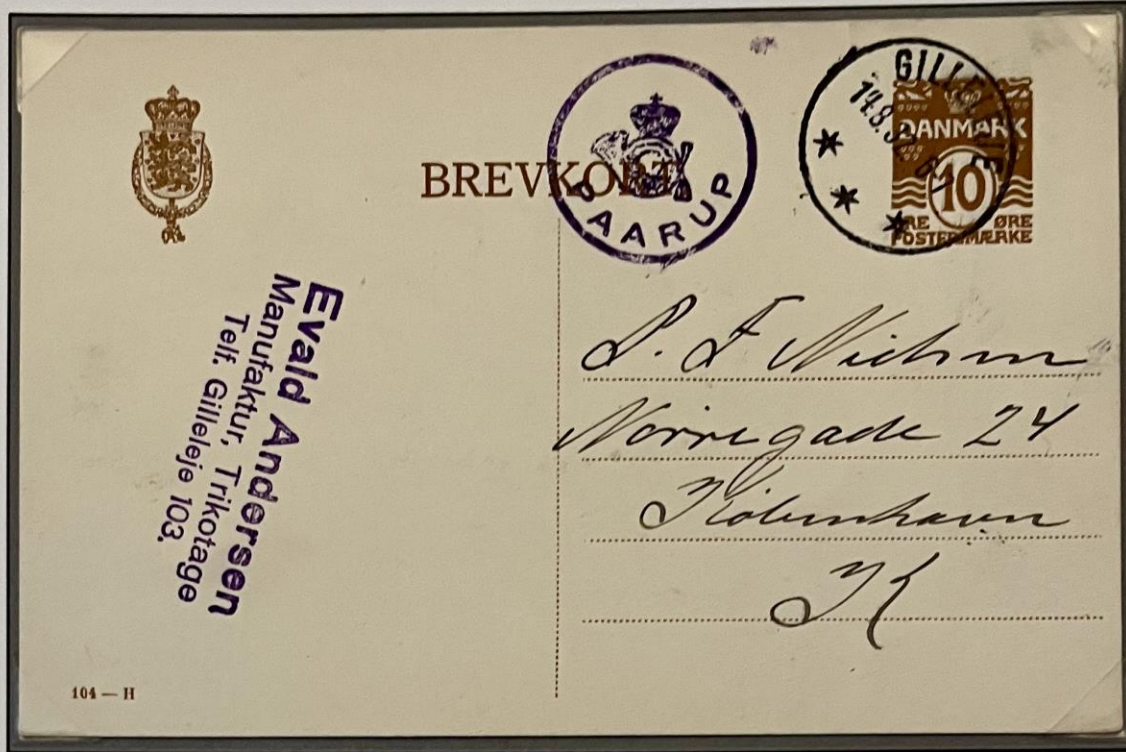 BREVKORT
PAARUP
GILLELEJE
14.8.3
DANMARK
10
ØRE ØRE
POSTFRIMÆRKE
Evald Andersen
Manufaktur, Trikotage
Telf. Gilleleje 103.
P. F Nielsen
Nörregade 24
Köbenhavn
K
104 — H